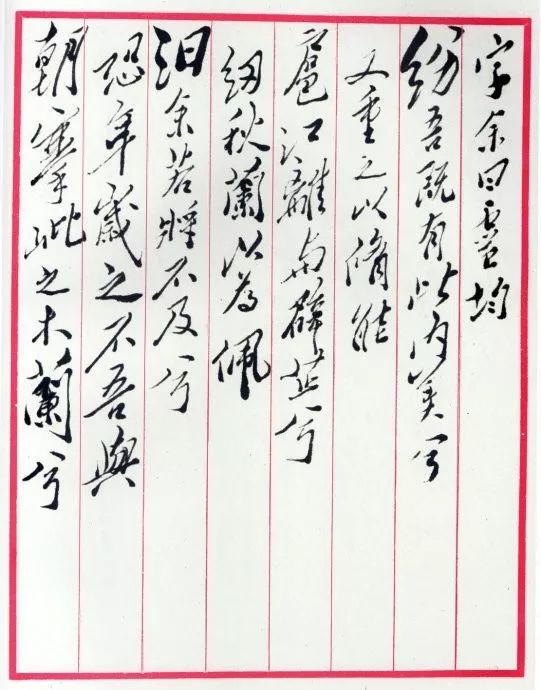 字余曰靈均
紛吾既有此内美兮
又重之以脩能
扈江離與辟芷兮
紉秋蘭以為佩
汩余若將不及兮
恐年歲之不吾與
朝搴阰之木蘭兮